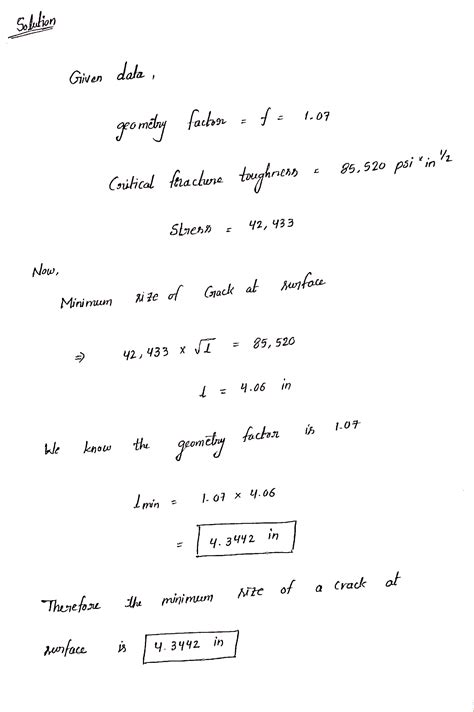 Solution
Given data,
geometry factor = f = 1.07
Critical fracture toughness = 85,520 psi * in^1/2
Stress = 42,433
Now,
Minimum size of Crack at surface
⇒ 42,433 × √l = 85,520
l = 4.06 in
We know the geometry factor is 1.07
lmin = 1.07 × 4.06
= 4.3442 in
Therefore the minimum size of a crack at
surface is 4.3442 in